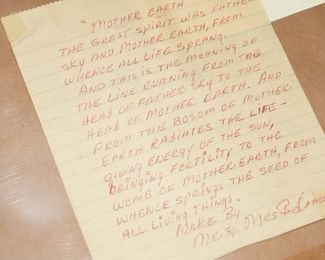 "MOTHER EARTH
THE GREAT SPIRIT WAS FATHER
SKY AND MOTHER EARTH, FROM
WHENCE ALL LIFE SPRANG.
AND THIS IS THE MEANING OF
THE LINE RUNNING FROM THE
HEAD OF FATHER SKY TO THE
HEAD OF MOTHER EARTH. AND
FROM THE BOSOM OF MOTHER
EARTH RADIATES THE LIFE-
GIVING ENERGY OF THE SUN,
BRINGING FERTILITY TO THE
WOMB OF MOTHER EARTH, FROM
WHENCE SPRINGS THE SEED OF
ALL LIVING THINGS.
MAKE BY
MR & MRS